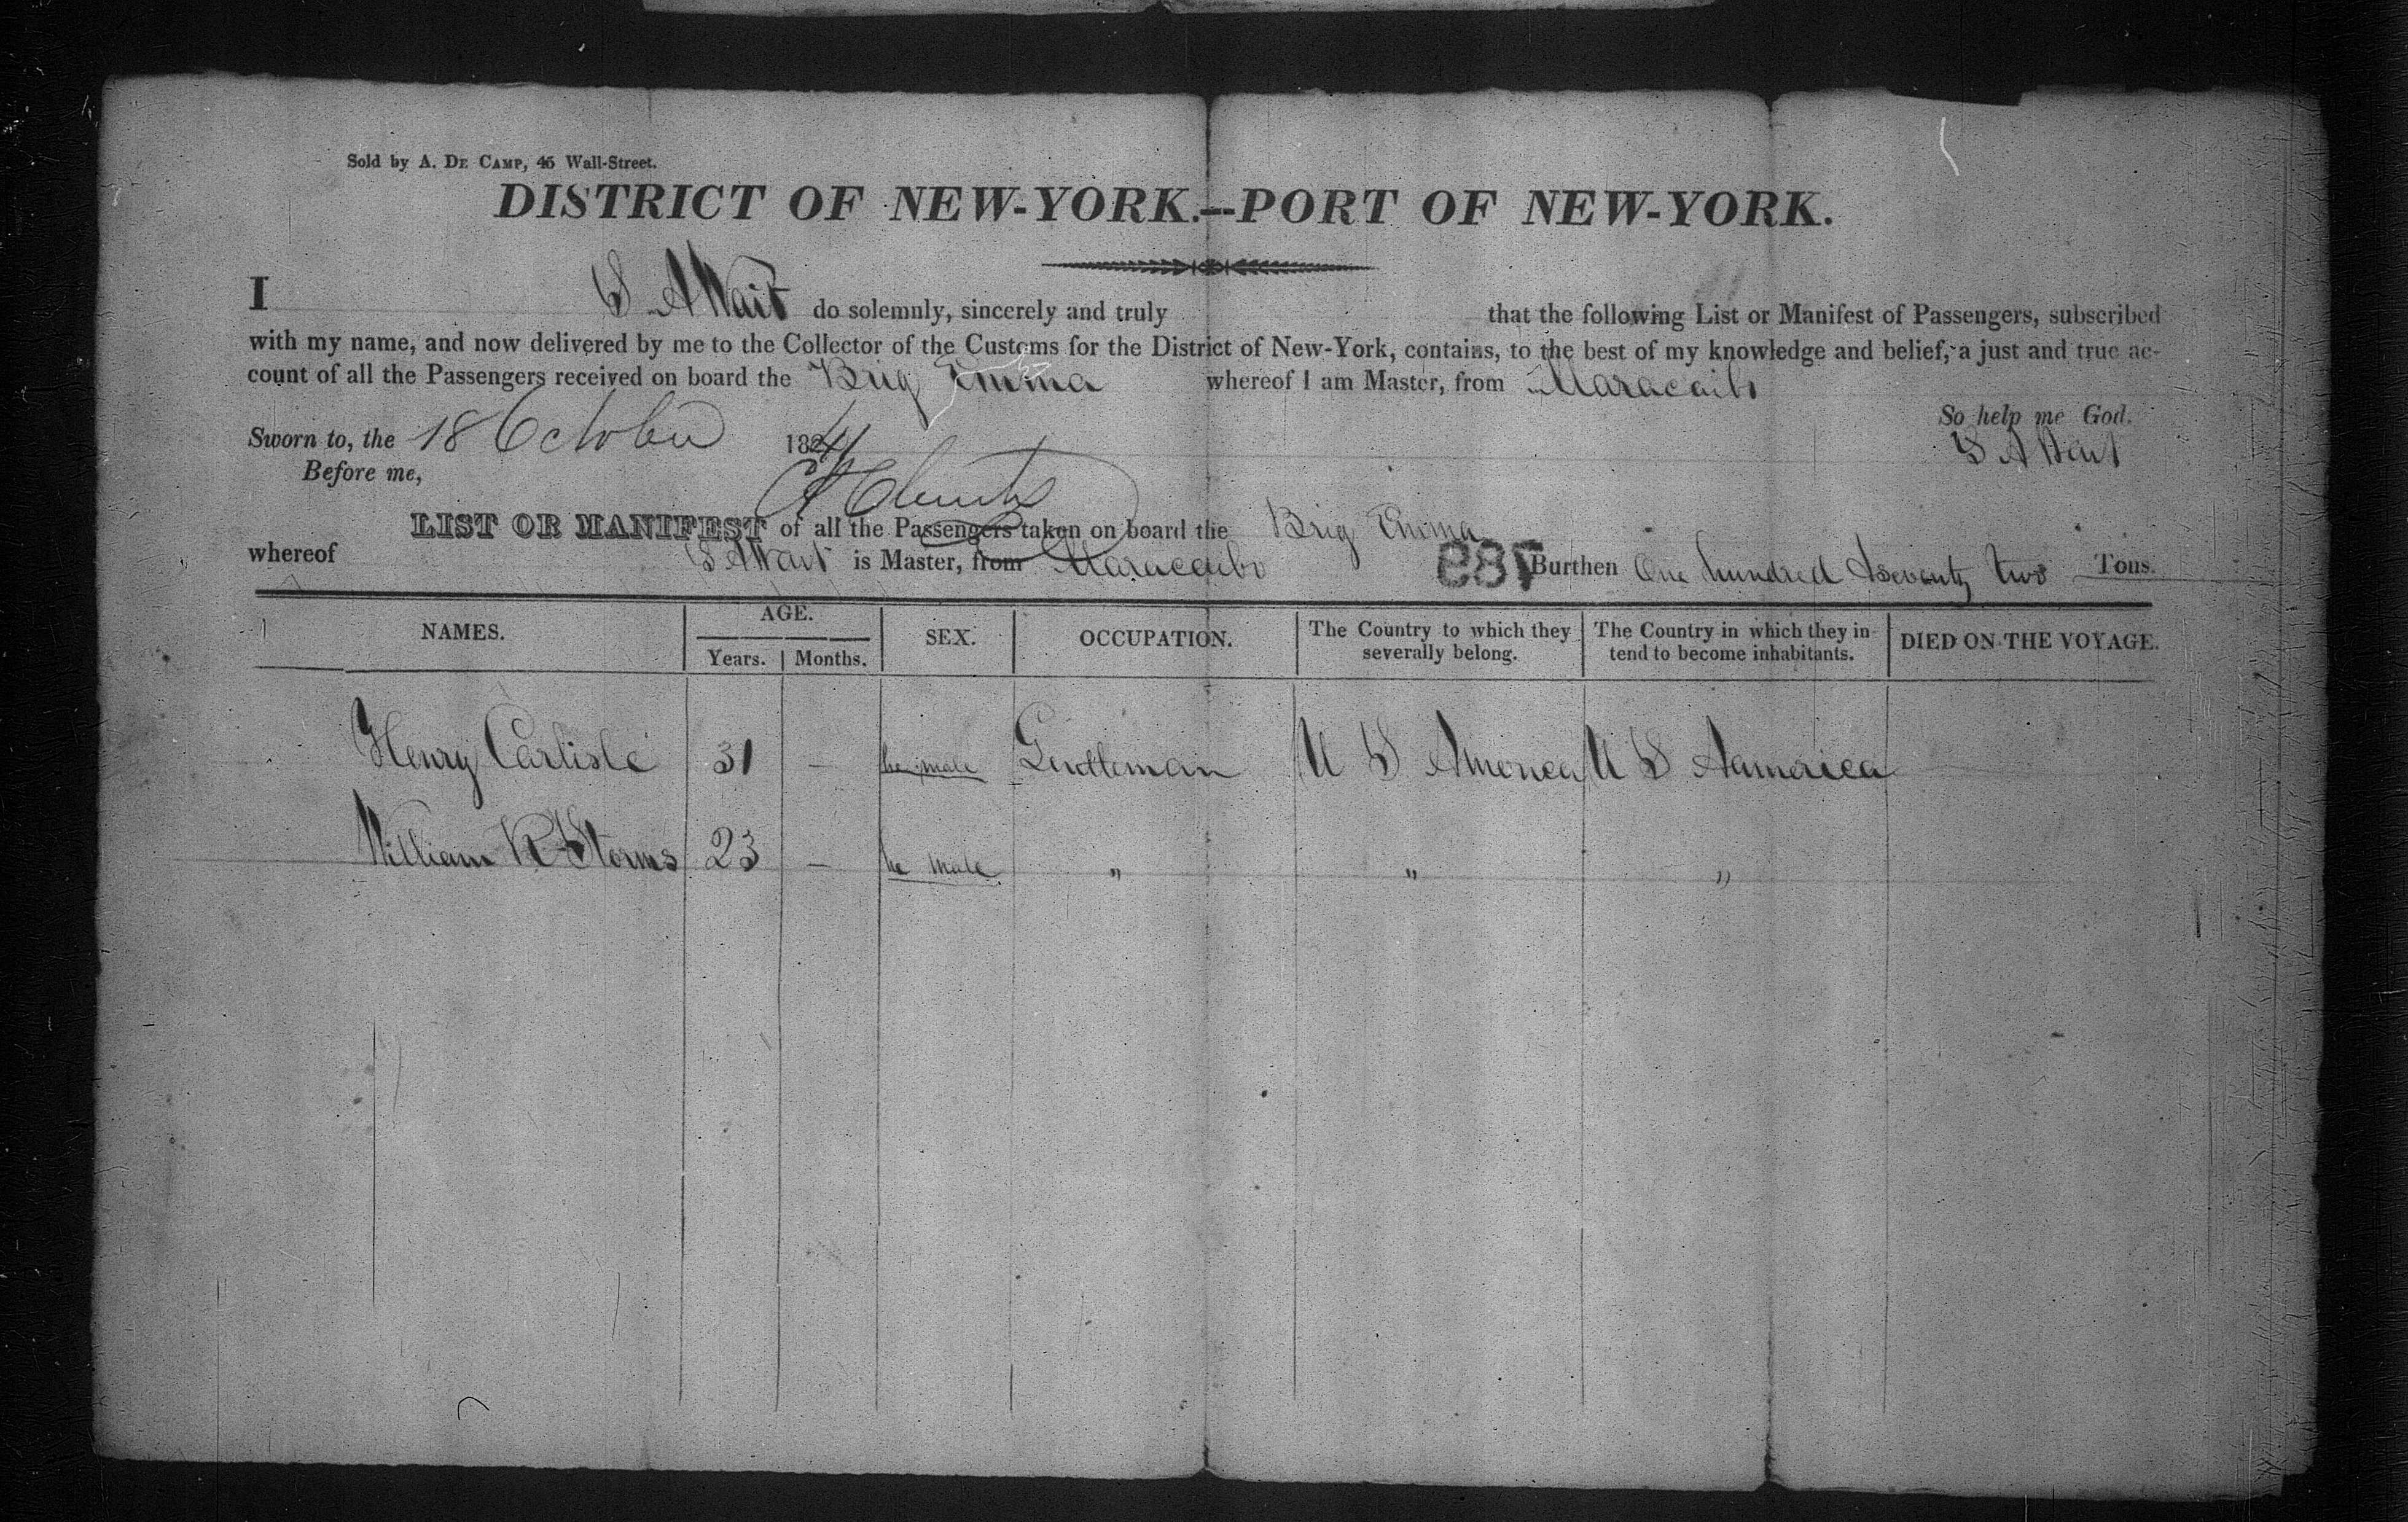 Sold by A. De Camp, 45 Wall-Street.
DISTRICT OF NEW-YORK.--PORT OF NEW-YORK.
I S A Wait do solemnly, sincerely and truly that the following List or Manifest of Passengers, subscribed
with my name, and now delivered by me to the Collector of the Customs for the District of New-York, contains, to the best of my knowledge and belief, a just and true ac-
count of all the Passengers received on board the Brig Emma whereof I am Master, from Maracaibo
So help me God.
Sworn to, the 18 October 1824
S A Wait
Before me,
LIST OR MANIFEST of all the Passengers taken on board the Brig Emma
whereof S A Wait is Master, from Maracaibo Burthen One hundred & seventy two Tons.
NAMES. AGE. Years. Months. SEX. OCCUPATION. The Country to which they severally belong. The Country in which they in- tend to become inhabitants. DIED ON THE VOYAGE.
Henry Carlisle 31 — he male Gentleman U S America U S Aamerica
William R Storms 23 — he male " " "